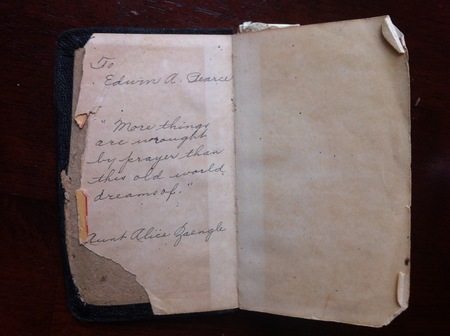 To
Edwin A. Pearce
" More things
are wrought
by prayer than
this old world
dreams of."
Aunt Alice